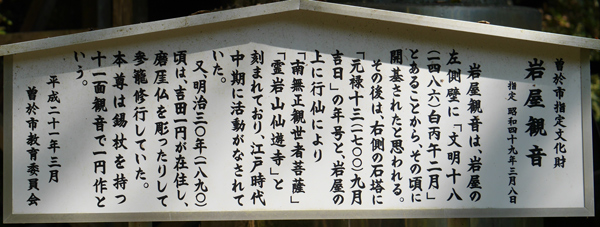 曽於市指定文化財
岩屋観音
指定 昭和四十九年三月八日
岩屋観音は、岩屋の
左側壁に「文明十八
(一四八六)白丙午二月」
とあることから、その頃に
開基されたと思われる。
その後は、右側の石塔に
「元禄十三(一七〇〇)九月
吉日」の年号と、岩屋の
上に行仙により
「南無正観世者菩薩」
「霊岩山仙遊寺」と
刻まれており、江戸時代
中期に活動がなされて
いた。
又、明治三〇年(一八九〇)
頃は、吉田一円が在住し、
磨崖仏を彫ったりして
参籠修行していた。
本尊は錫杖を持つ
十一面観音で一円作と
いう。
平成二十一年三月
曽於市教育委員会